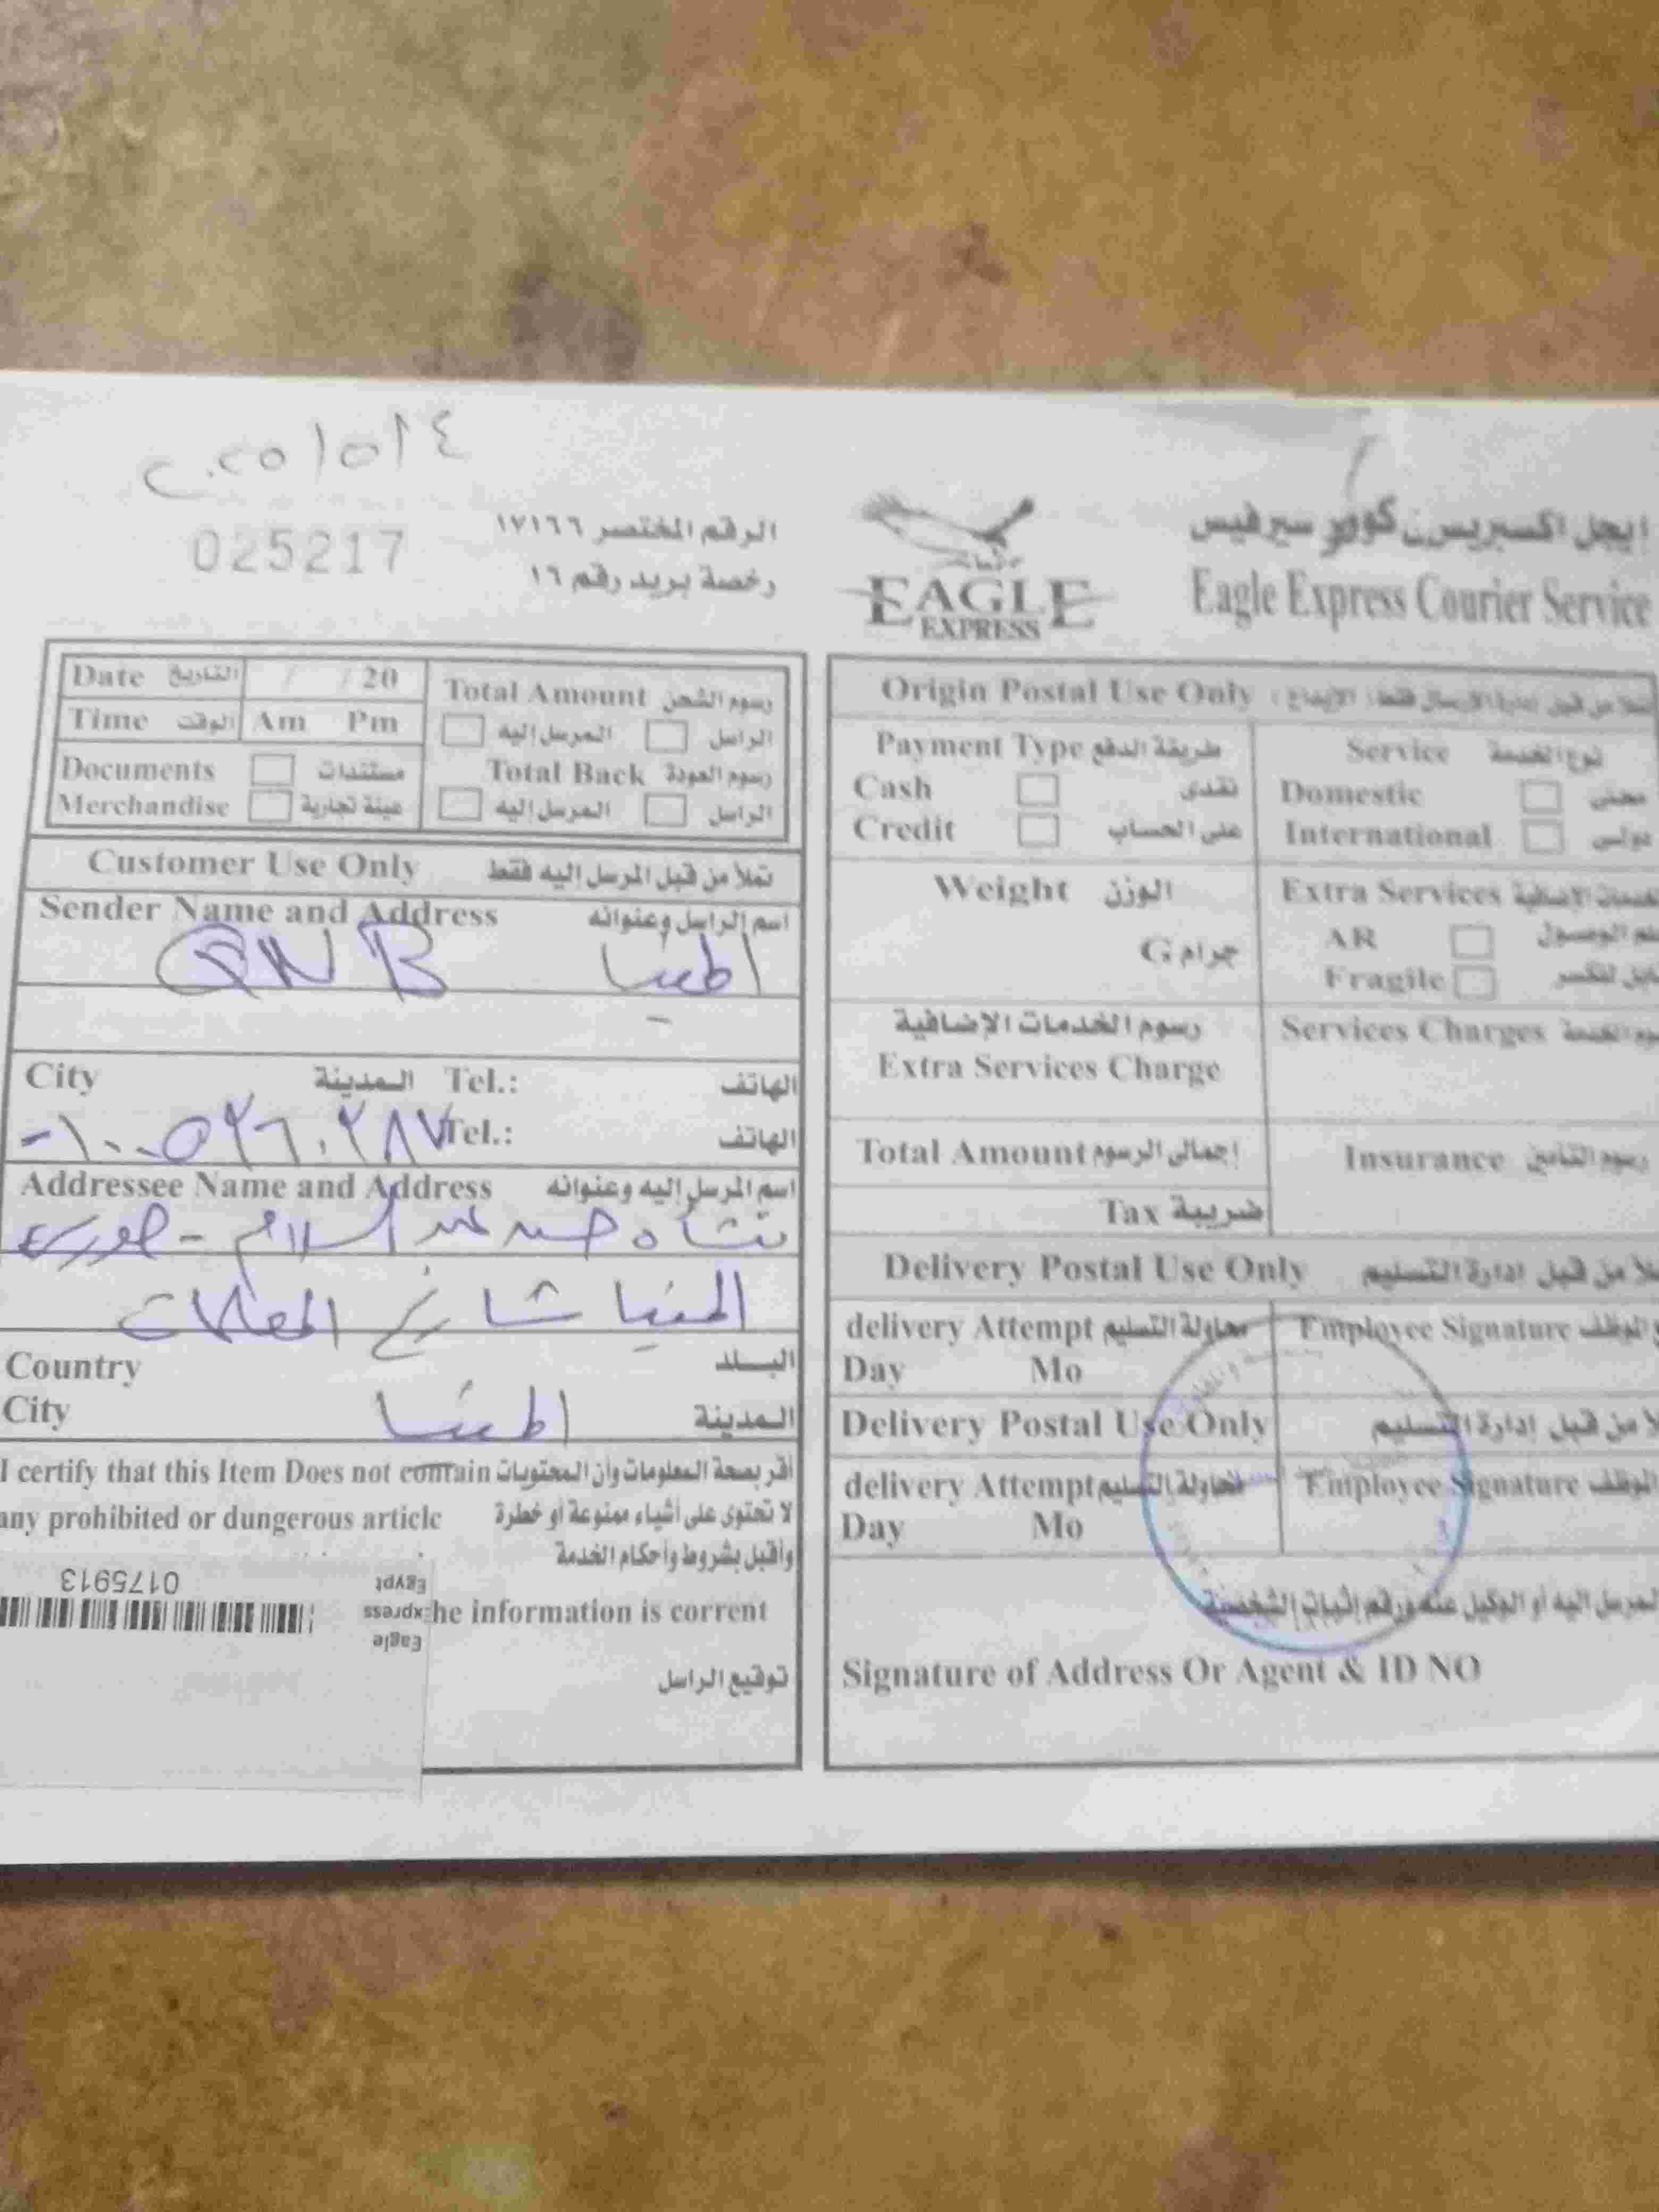 ٢٠٢٥/٥/٤
025217
الرقم المختصر ١٧١٦٦
رخصة بريد رقم ١٦
EAGLE
EXPRESS
ايجل اكسبريس كوريير سيرفيس
Eagle Express Courier Service
Date التاريخ / / 20
Time الوقت Am Pm
Total Amount رسوم الشحن
المرسل إليه الراسل
Documents مستندات
Merchandise عينة تجارية
Total Back رسوم العودة
المرسل إليه الراسل
Customer Use Only تملأ من قبل المرسل إليه فقط
Sender Name and Address اسم الراسل وعنوانه
QNB المنيا
City المدينة Tel.: الهاتف
Tel.: الهاتف
Addressee Name and Address اسم المرسل إليه وعنوانه
عبد السلام -
المنيا شارع
Country البلد
City المنيا المدينة
I certify that this Item Does not contain أقر بصحة المعلومات وأن المحتويات
any prohibited or dungerous article لا تحتوى على أشياء ممنوعة أو خطرة
وأقبل بشروط وأحكام الخدمة
he information is corrent
توقيع الراسل
0175913
Eagle
xpress
Egypt
Origin Postal Use Only
Payment Type طريقة الدفع
Cash نقدى
Credit على الحساب
Service نوع الخدمة
Domestic محلى
International دولى
Weight الوزن
جرام G
Extra Services
AR
Fragile
رسوم الخدمات الإضافية
Extra Services Charge
Services Charges
Total Amount إجمالى الرسوم
Tax ضريبة
Insurance رسوم التأمين
Delivery Postal Use Only من قبل إدارة التسليم
delivery Attempt محاولة التسليم
Day Mo
Employee Signature الموظف
Delivery Postal Use Only من قبل إدارة التسليم
delivery Attempt محاولة التسليم
Day Mo
Employee Signature الموظف
المرسل اليه أو الوكيل عنه ورقم إثبات الشخصية
Signature of Address Or Agent & ID NO